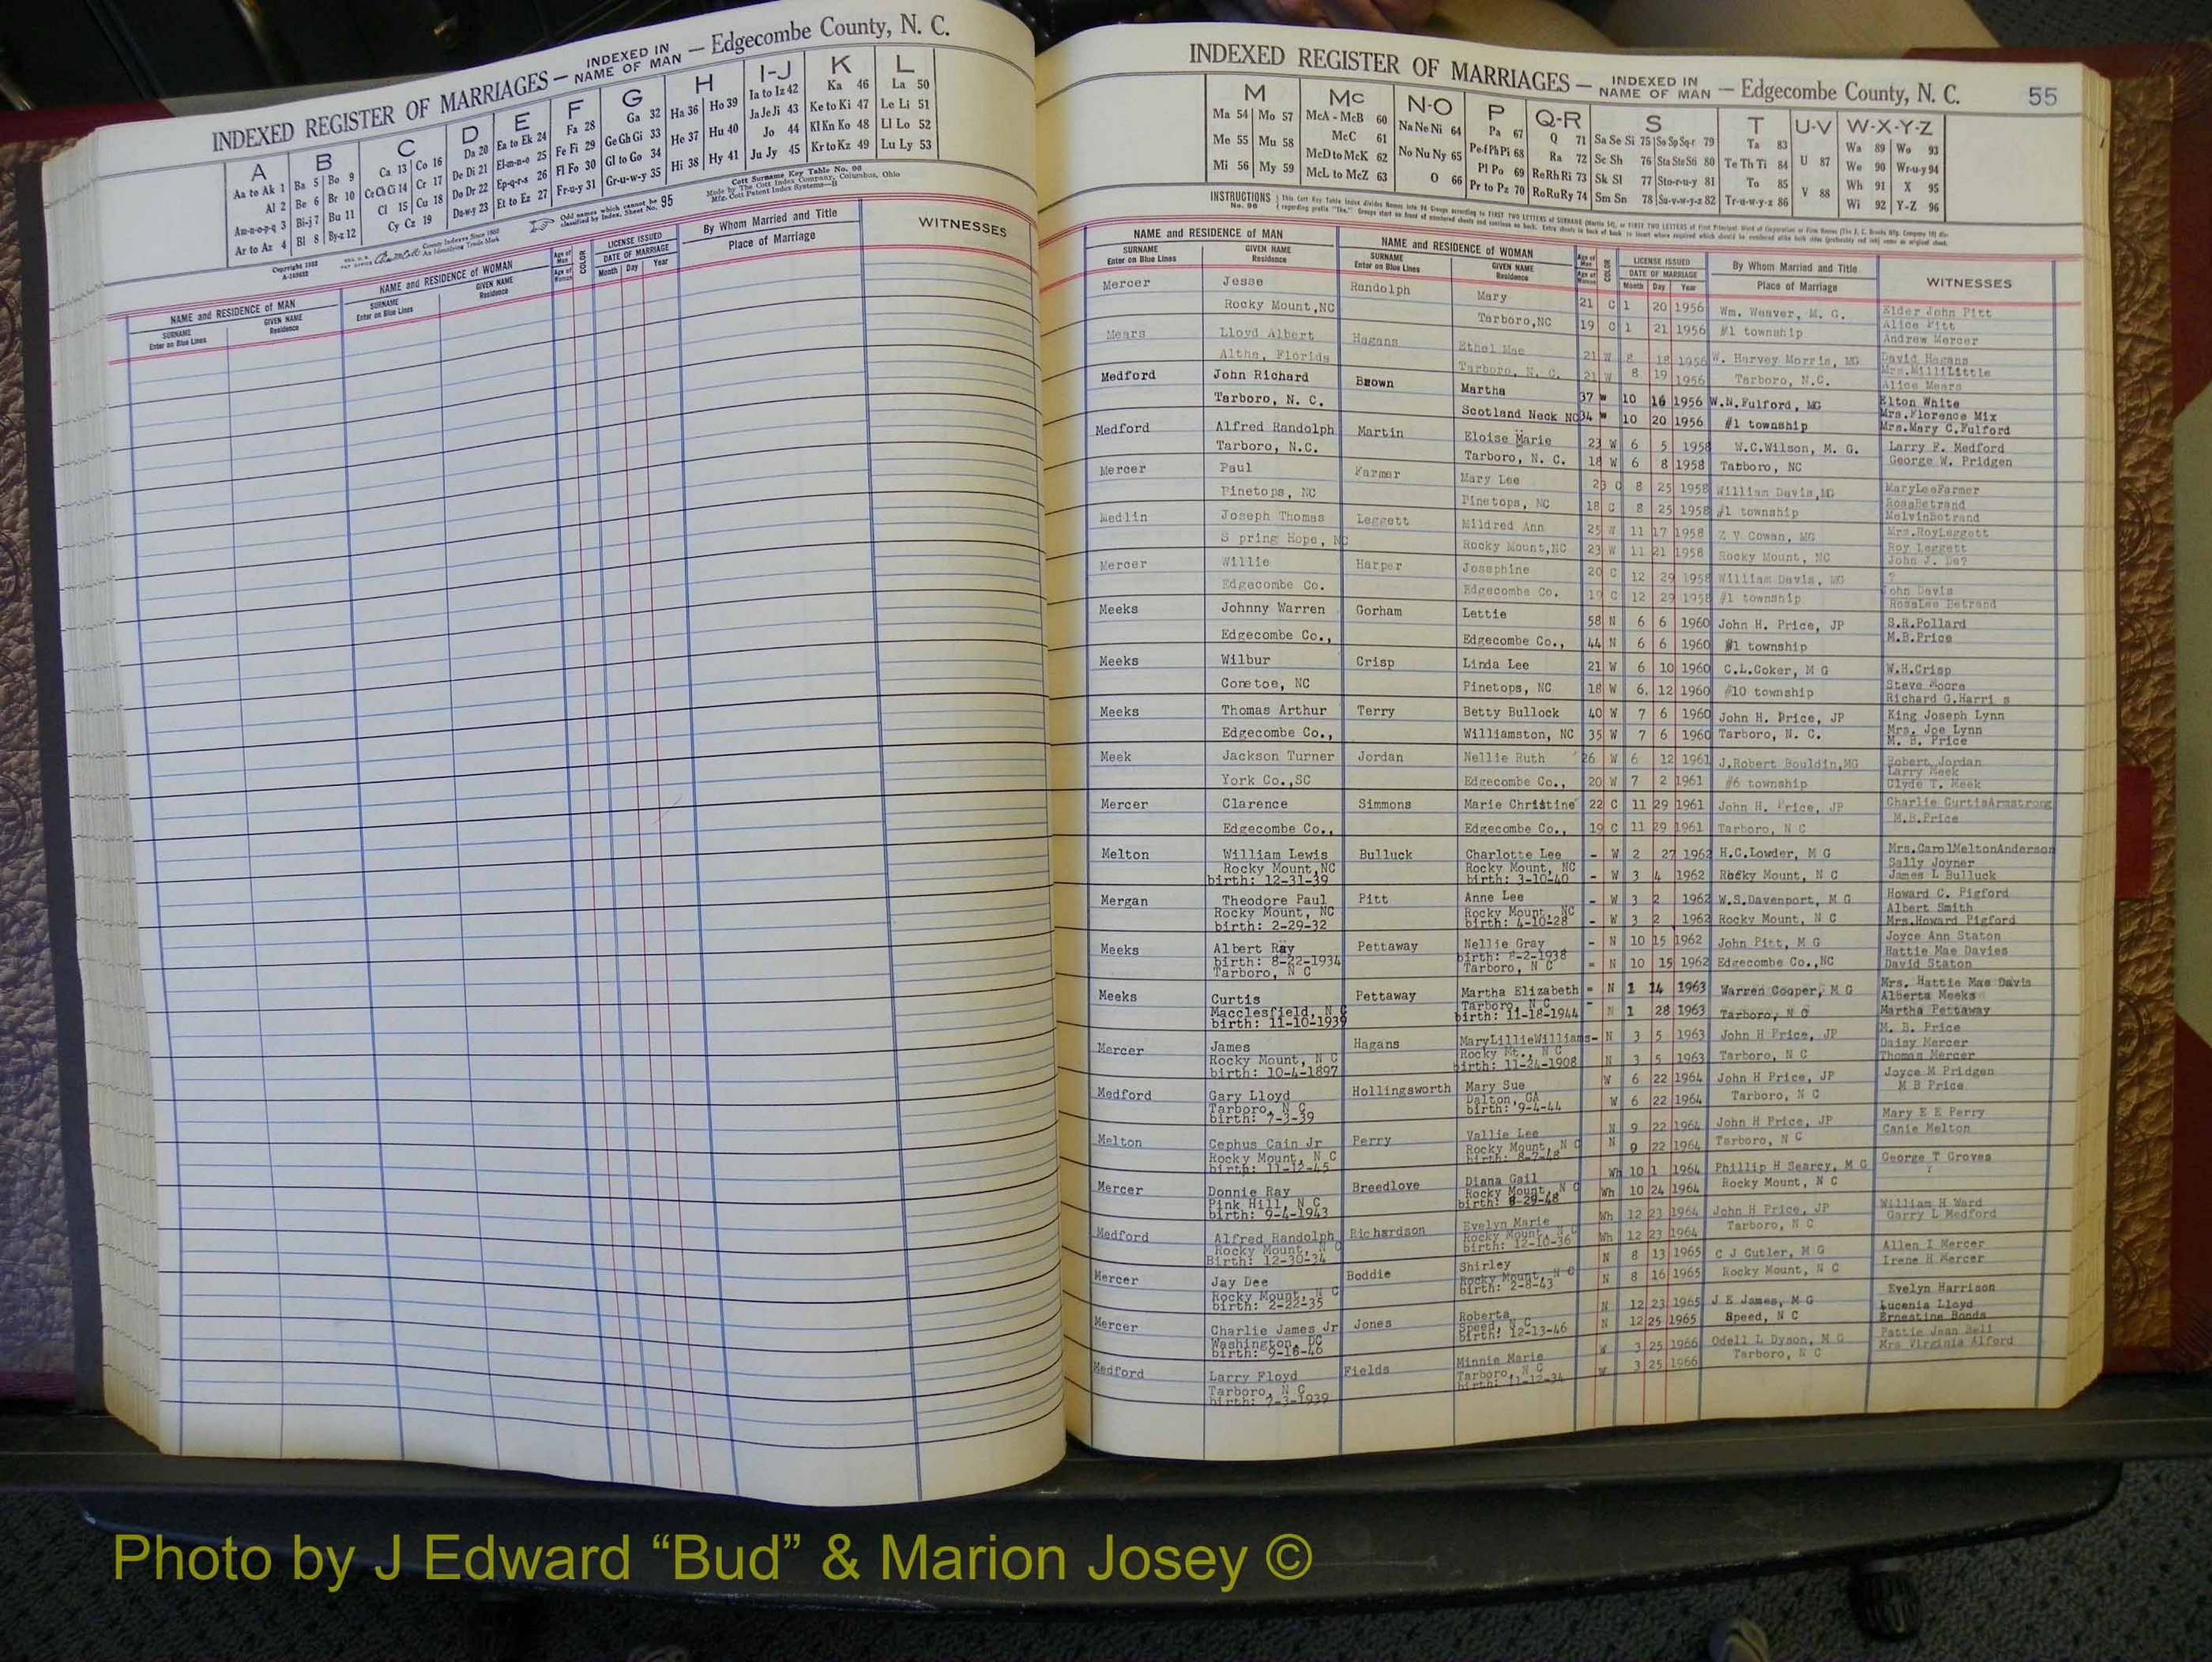 INDEXED REGISTER OF MARRIAGES — INDEXED IN NAME OF MAN — Edgecombe County, N. C.
A B C D E F G H I-J K L
Aa to Ak 1 Ba 5 Bo 9 Ca 13 Co 16 Da 20 Ea to Ek 24 Fa 28 Ga 32 Ha 36 Ho 39 Ia to Iz 42 Ka 46 La 50
Al 2 Be 6 Br 10 Ce Ch Ci 14 Cr 17 De Di 21 El-m-n-o 25 Fe Fi 29 Ge Gh Gi 33 He 37 Hu 40 Ja Je Ji 43 Ke to Ki 47 Le Li 51
Am-n-o-p-q 3 Bi-j 7 Bu 11 Cl 15 Cu 18 Do Dr 22 Ep-q-r-s 26 Fl Fo 30 Gl to Go 34 Hi 38 Hy 41 Jo 44 Kl Kn Ko 48 Ll Lo 52
Ar to Az 4 Bl 8 By-z 12 Cy Cz 19 Du-w-y 23 Et to Ez 27 Fr-u-y 31 Gr-u-w-y 35 Ju Jy 45 Kr to Kz 49 Lu Ly 53
Odd names which cannot be classified by Index. Sheet No. 95
Cott Surname Key Table No. 96
Made by The Cott Index Company, Columbus, Ohio
NAME and RESIDENCE of MAN
NAME and RESIDENCE OF WOMAN
SURNAME
Enter on Blue Lines
GIVEN NAME
Residence
SURNAME
Enter on Blue Lines
GIVEN NAME
Residence
Age of Man
Age of Woman
COLOR
LICENSE ISSUED
DATE OF MARRIAGE
Month Day Year
By Whom Married and Title
Place of Marriage
WITNESSES
INDEXED REGISTER OF MARRIAGES — INDEXED IN NAME OF MAN — Edgecombe County, N. C. 55
M Mc N-O P Q-R S T U-V W-X-Y-Z
Ma 54 Mo 57 McA - McB 60 Na Ne Ni 64 Pa 67 Q 71 Sa Se Si 75 So Sp Sq-r 79 Ta 83 U 87 Wa 89 Wo 93
Me 55 Mu 58 McC 61 No Nu Ny 65 Pe-f Ph Pi 68 Ra 72 Sc Sh 76 Sta Ste Sti 80 Te Th Ti 84 V 88 We 90 Wr-u-y 94
Mi 56 My 59 McD to McK 62 O 66 Pl Po 69 Re Rh Ri 73 Sk Sl 77 Sto-r-u-y 81 To 85 Wh 91 X 95
McL to McZ 63 Pr to Pz 70 Ro Ru Ry 74 Sm Sn 78 Su-v-w-y-z 82 Tr-u-w-y-z 86 Wi 92 Y-Z 96
INSTRUCTIONS
NAME AND RESIDENCE OF MAN
NAME AND RESIDENCE OF WOMAN
SURNAME
Enter on Blue Lines
GIVEN NAME
Residence
SURNAME
Enter on Blue Lines
GIVEN NAME
Residence
Age of Man
Age of Woman
COLOR
LICENSE ISSUED
DATE OF MARRIAGE
Month Day Year
By Whom Married and Title
Place of Marriage
WITNESSES
Mercer Jesse Randolph Mary 21 C 1 20 1956 Wm. Weaver, M. G. Elder John Pitt
Rocky Mount,NC Tarboro,NC 19 C 1 21 1956 #1 township Alice Pitt
Andrew Mercer
Mears Lloyd Albert Hagans Ethel Mae 21 W 8 18 1956 W. Harvey Morris, MG David Hagans
Altha, Florida Tarboro, N. C. 21 W 8 19 1956 Tarboro, N.C. Mrs.MilliLittle
Alice Mears
Medford John Richard Brown Martha 37 W 10 16 1956 W.N.Fulford, MG Elton White
Tarboro, N. C. Scotland Neck NC 34 W 10 20 1956 #1 township Mrs.Florence Mix
Mrs.Mary C.Fulford
Medford Alfred Randolph Martin Eloise Marie 23 W 6 5 1958 W.C.Wilson, M. G. Larry F. Medford
Tarboro, N.C. Tarboro, N. C. 18 W 6 8 1958 Tarboro, NC George W. Pridgen
Mercer Paul Farmer Mary Lee 23 C 8 25 1958 William Davis,MG MaryLeeFarmer
Pinetops, NC Pinetops, NC 18 C 8 25 1958 #1 township RosaBetrand
MelvinBetrand
Medlin Joseph Thomas Leggett Mildred Ann 25 W 11 17 1958 Z V Cowan, MG Mrs.RoyLeggett
S pring Hope, NC Rocky Mount,NC 23 W 11 21 1958 Rocky Mount, NC Roy Leggett
John J. De?
Mercer Willie Harper Josephine 20 C 12 29 1958 William Davis, MG ?
Edgecombe Co. Edgecombe Co. 19 C 12 29 1958 #1 township John Davis
RosaLee Betrand
Meeks Johnny Warren Gorham Lettie 58 N 6 6 1960 John H. Price, JP S.R.Pollard
Edgecombe Co., Edgecombe Co., 44 N 6 6 1960 #1 township M.B.Price
Meeks Wilbur Crisp Linda Lee 21 W 6 10 1960 C.L.Coker, M G W.H.Crisp
Conetoe, NC Pinetops, NC 18 W 6. 12 1960 #10 township Steve Moore
Richard G.Harri s
Meeks Thomas Arthur Terry Betty Bullock 40 W 7 6 1960 John H. Price, JP King Joseph Lynn
Edgecombe Co., Williamston, NC 35 W 7 6 1960 Tarboro, N. C. Mrs. Joe Lynn
M. B. Price
Meek Jackson Turner Jordan Nellie Ruth 26 W 6 12 1961 J.Robert Bouldin,MG Robert Jordan
Larry Meek
York Co.,SC Edgecombe Co., 20 W 7 2 1961 #6 township Clyde T. Meek
Mercer Clarence Simmons Marie Christine 22 C 11 29 1961 John H. Price, JP Charlie CurtisArmstrong
Edgecombe Co., Edgecombe Co., 19 C 11 29 1961 Tarboro, N C M.B.Price
Melton William Lewis Bulluck Charlotte Lee - W 2 27 1962 H.C.Lowder, M G Mrs.CarolMeltonAnderson
Rocky Mount,NC Rocky Mount, NC Sally Joyner
birth: 12-31-39 birth: 3-10-40 - W 3 4 1962 Rocky Mount, N C James L Bulluck
Mergan Theodore Paul Pitt Anne Lee - W 3 2 1962 W.S.Davenport, M G Howard C. Pigford
Rocky Mount, NC Rocky Mount, NC Albert Smith
birth: 2-29-32 birth: 4-10-28 - W 3 2 1962 Rocky Mount, N C Mrs.Howard Pigford
Meeks Albert Ray Pettaway Nellie Gray - N 10 15 1962 John Pitt, M G Joyce Ann Staton
birth: 8-22-1934 birth: 8-2-1938 Hattie Mae Davies
Tarboro, N C Tarboro, N C - N 10 15 1962 Edgecombe Co.,NC David Staton
Meeks Curtis Pettaway Martha Elizabeth - N 1 14 1963 Warren Cooper, M G Mrs. Hattie Mae Davis
Macclesfield, N C Tarboro, N C Alberta Meeks
birth: 11-10-1939 birth: 11-18-1944 - N 1 28 1963 Tarboro, N C Martha Pettaway
Mercer James Hagans MaryLillieWilliams- N 3 5 1963 John H Price, JP M. B. Price
Rocky Mount, N C Rocky Mt., N C Daisy Mercer
birth: 10-4-1897 birth: 11-24-1908 N 3 5 1963 Tarboro, N C Thomas Mercer
Medford Gary Lloyd Hollingsworth Mary Sue W 6 22 1964 John H Price, JP Joyce M Pridgen
Tarboro, N C Dalton, GA M B Price
birth: 7-3-39 birth: 9-4-44 W 6 22 1964 Tarboro, N C
Melton Cephus Cain Jr Perry Vallie Lee N 9 22 1964 John H Price, JP Mary E E Perry
Rocky Mount, N C Rocky Mount, N C N 9 22 1964 Tarboro, N C Canie Melton
birth: 11-12-45 birth: 8-7-48
Mercer Donnie Ray Breedlove Diana Gail Wh 10 1 1964 Phillip H Searcy, M G George T Groves
Pink Hill, N C Rocky Mount, N C Wh 10 24 1964 Rocky Mount, N C
birth: 9-4-1943 birth: 8-29-48
Medford Alfred Randolph Richardson Evelyn Marie Wh 12 23 1964 John H Price, JP William H Ward
Rocky Mount, N C Rocky Mount, N C Wh 12 23 1964 Tarboro, N C Garry L Medford
Birth: 12-30-34 birth: 12-10-36
Mercer Jay Dee Boddie Shirley N 8 13 1965 C J Cutler, M G Allen I Mercer
Rocky Mount, N C Rocky Mount, N C N 8 16 1965 Rocky Mount, N C Irene H Mercer
birth: 2-22-35 birth: 2-8-43
Mercer Charlie James Jr Jones Roberta N 12 23 1965 J E James, M G Evelyn Harrison
Washington, DC Speed, N C N 12 25 1965 Speed, N C Lucenia Lloyd
birth: 9-18-46 birth: 12-13-46 Ernestine Bonds
Medford Larry Floyd Fields Minnie Marie W 3 25 1966 Odell L Dyson, M G Pattie Jean Bell
Tarboro, N C Tarboro, N C W 3 25 1966 Tarboro, N C Mrs Virginia Alford
birth: 7-3-1939 birth: 11-12-34
Photo by J Edward “Bud” & Marion Josey ©